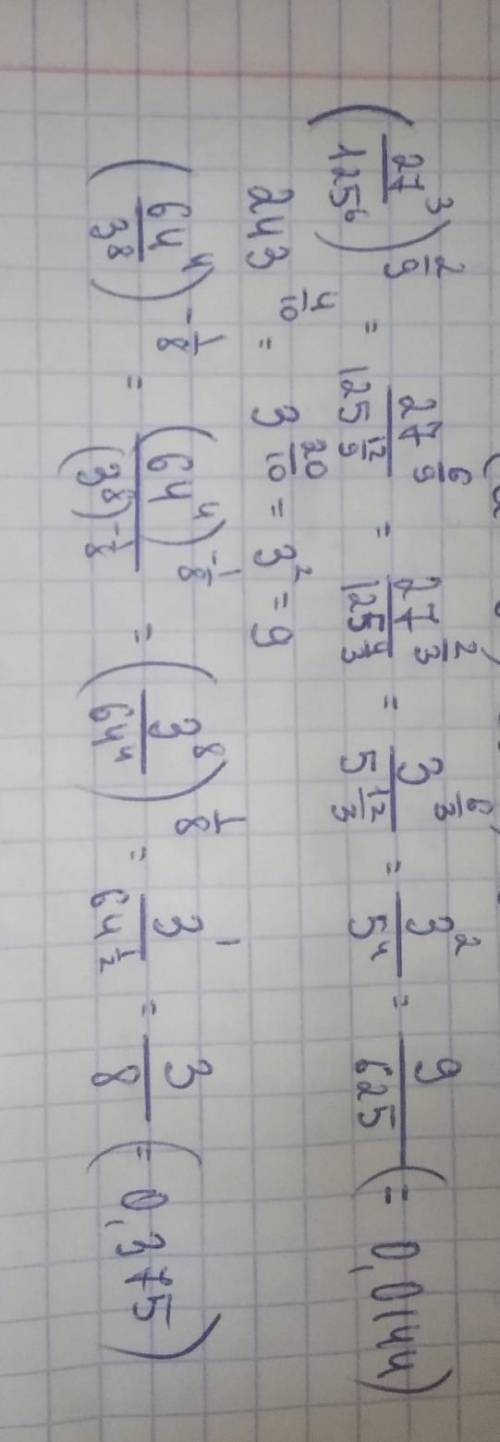 (27³/125⁶)^(2/9) = 27^(6/9)/125^(12/9) = 27^(2/3)/125^(4/3) = 3^(6/3)/5^(12/3) = 3²/5⁴ = 9/625 (= 0,0144)
243^(4/10) = 3^(20/10) = 3² = 9
(64⁴/3⁸)^(-1/8) = (64⁴)^(-1/8)/(3⁸)^(-1/8) = (3⁸/64⁴)^(1/8) = 3¹/64^(1/2) = 3/8 (= 0,375)